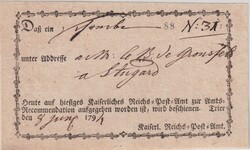 Daß ein 88 N: 31
unter Addresse a Mr: le B: de
a Stugard
Heute auf hiesiges Kaiserliches Reichs-Post-Amt zur Amts-
Recommendation aufgegeben worden ist, wird beschienen. Trier
den 9 Juny 1794
Kaiserl. Reichs-Post-Amt.